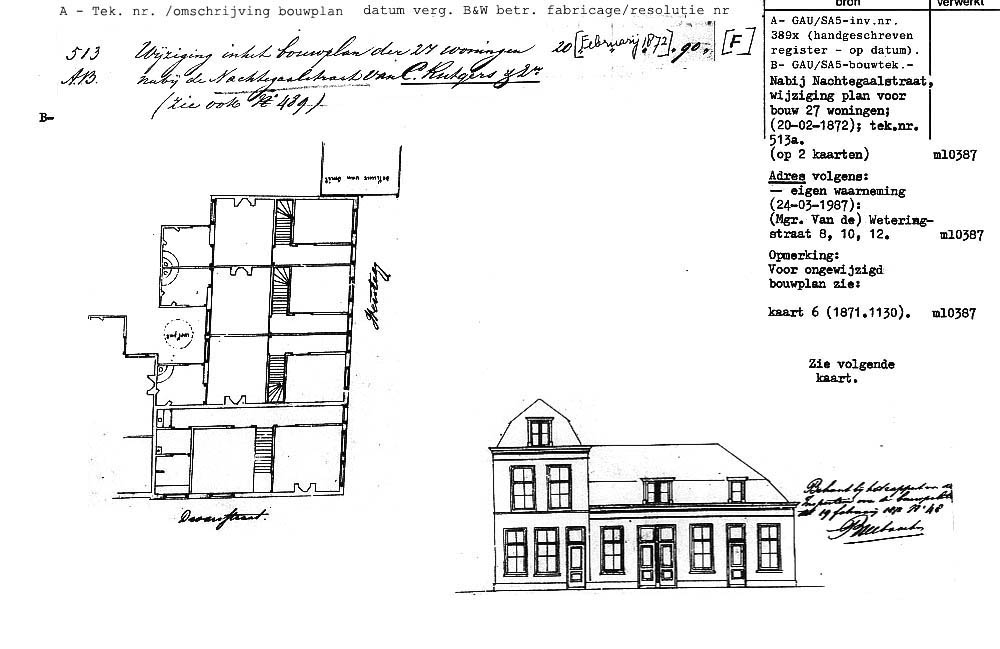 A - Tek. nr. /omschrijving bouwplan   datum verg. B&W betr. fabricage/resolutie nr
bron
verwerkt
513 Wijziging in het bouwplan der 27 woningen 20 [Februarij 1872]. 90. [F]
A.B. nabij de Nachtegaalstraat van C. Rutgers
(zie ook N° 489.)
B-
A- GAU/SA5-inv.nr.
389x (handgeschreven
register - op datum).
B- GAU/SA5-bouwtek.-
Nabij Nachtegaalstraat,
wijziging plan voor
bouw 27 woningen;
(20-02-1872); tek.nr.
513a.
(op 2 kaarten) ml0387
Adres volgens:
— eigen waarneming
(24-03-1987):
(Mgr. Van de) Wetering-
straat 8, 10, 12. ml0387
Opmerking:
Voor ongewijzigd
bouwplan zie:
kaart 6 (1871.1130). ml0387
Zie volgende
kaart.
Dwarsstraat.
Behoort bij het rapport van den